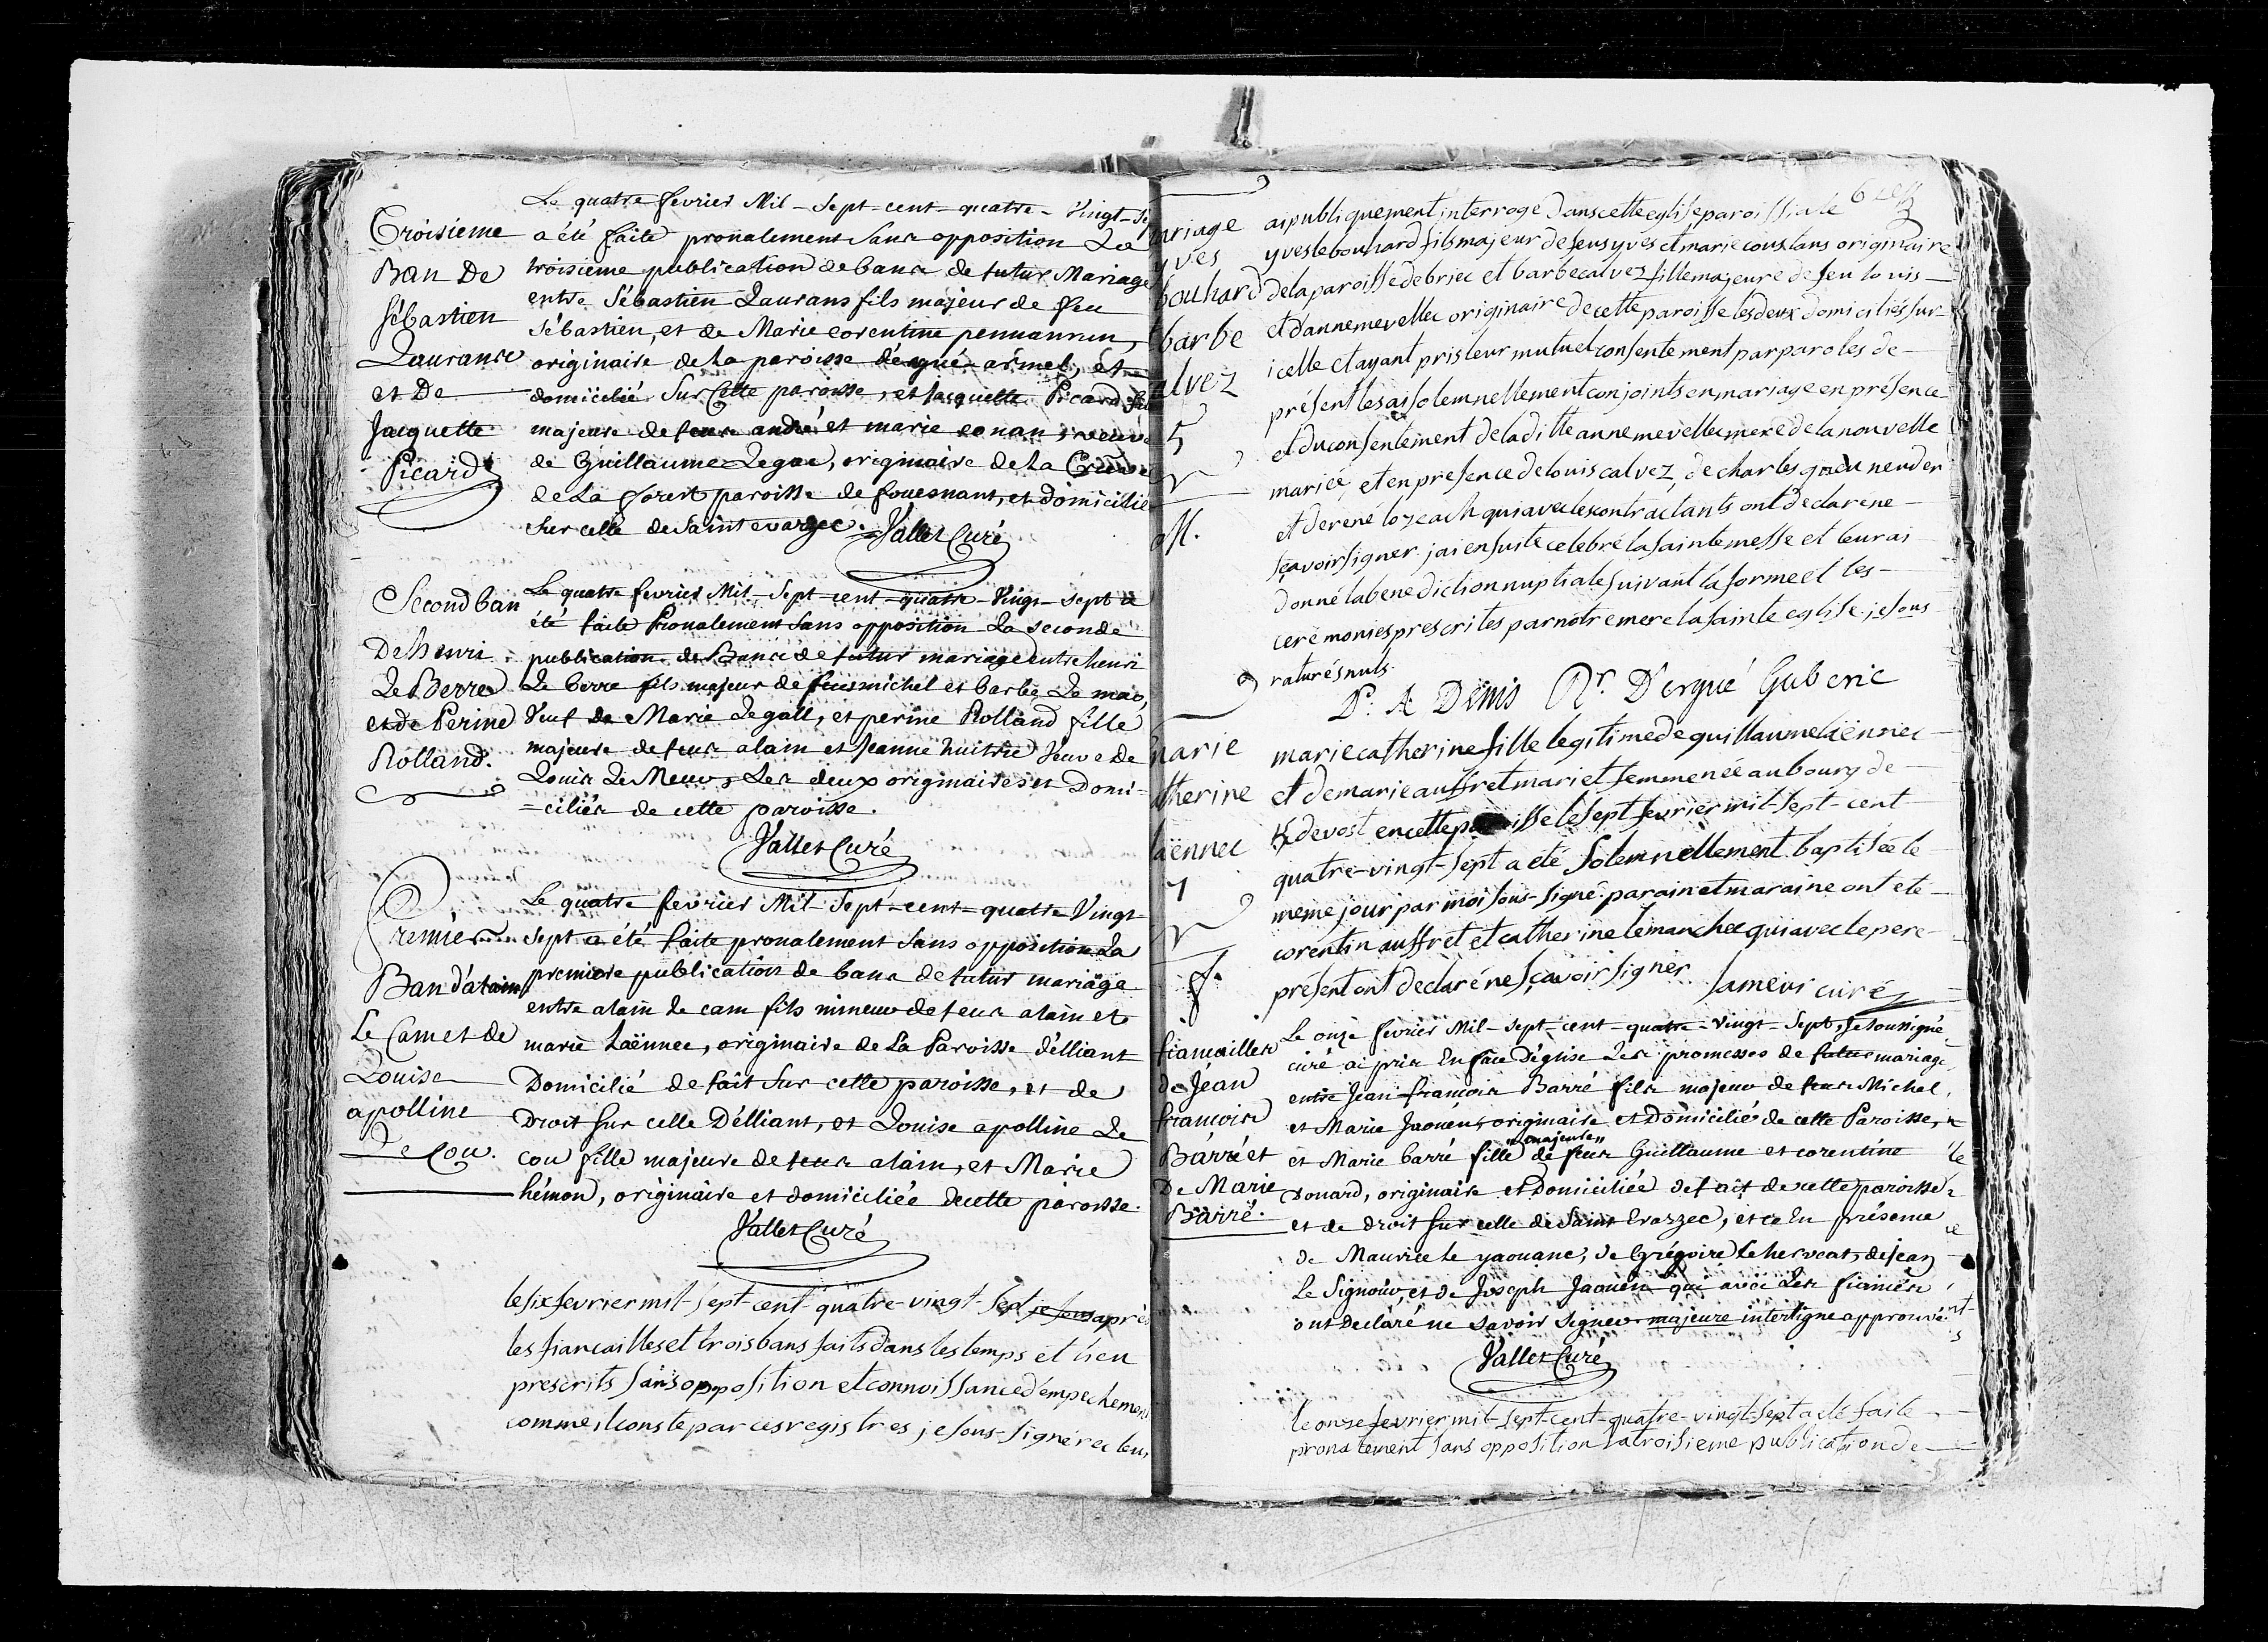 Troisieme
Ban De
Sébastien
Laurance
et De
Jacquette
Picard
Le quatre fevrier Mil-Sept-cent-quatre-Vingt-Se
a été faite pronalement sans opposition La
troisieme publication de bans de futur Mariage
entre Sébastien Laurans fils majeur de feu
Sébastien, et de Marie corentine pennanrun,
originaire de la paroisse d'ergué-armel, et
domicilié Sur Cette paroisse, et Jacquette Picard fil
majeure de feus andré et marie conan, veuve
de Guillaume Legae, originaire de La Creuse
de La forest paroisse de fouesnant, et domicilié
sur celle de Saint evarzec. Vallet Curé
Second ban
De henri
Le Berre
et de Perine
Rolland.
Le quatre fevrier Mil-Sept-cent-quatre-Vingt-Sept a
été faite Pronalement Sans opposition La seconde
publication de Bans de futur mariage entre henri
Le berre fils majeur de feus michel et barbe Le mao,
Veuf de Marie Legall, et perine Rolland fille
majeure de feus alain et Jeanne huitric Veuve de
Louis Le Meur, Les deux originaires et Domi-
=ciliés de cette paroisse.
Vallet Curé
Premier
Ban d'alain
Le Cam et de
Louise
apolline
Le Cou.
Le quatre fevrier Mil-Sept-cent-quatre Vingt
Sept a été faite pronalement Sans opposition La
premiere publication de bans de futur mariage
entre alain Le cam fils mineur de feus alain et
marie Laënnec, originaire de La Paroisse d'élliant
Domicilié de fait Sur cette paroisse, et de
Droit Sur celle D'élliant, et Louise apolline Le
cou fille majeure de feus alain, et Marie
hémon, originaire et domiciliée decette paroisse.
Vallet Curé
le six fevrier mil-sept-cent-quatre-vingt-sept je sous après
les fiancailles et trois bans faits dans les temps et lieu
prescrits sans opposition et connoissance d'empechement
comme il conste par ces registres, je sous-signé recteur
ariage
yves
bouhard
barbe
alvez
5
M.
ai publiquement interrogé dans cette eglise paroissiale
yves le bouhard fils majeur de feus yves et marie coustans originaire
de la paroisse de briec et barbe calvez fille majeure de feu louis
et d'anne mevellec originaire de cette paroisse les deux domiciliés sur
icelle et ayant pris leur mutuel consentement par paroles de
présent les ai solemnellement conjoints en mariage en présence
et du consentement de la ditte anne mevellec mere de la nouvelle
mariée, et en presence de louis calvez, de charles
et de rené lozeach qui avec les contractants ont declaré ne
sçavoir signer. j'ai ensuite celebré la sainte messe et leur ai
donné la benediction nuptiale suivant la forme et les
ceremonies prescrites par notre mere la sainte eglise. je sous
raturés nuls.
A Denis Rr. D'ergué Gaberic
marie
therine
laënnec
7
f.
marie catherine fille legitime de guillaume laënnec
et de marie auffret mari et femme née au bourg de
en cette paroisse le sept fevrier mil-sept-cent
quatre-vingt-sept a été solemnellement baptisée le
meme jour par moi sous-signé. parain et maraine ont ete
corentin auffret et catherine lemarchec qui avec le pere
présent ont declaré ne sçavoir signer curé
fiancailles
de Jéan
francoise
Barré et
De Marie
Barré.
Le onze fevrier Mil-sept-cent-quatre-vingt-Sept, Je soussigné
curé ai pris En face d'église Les promesses de futur mariage
entre Jean francois Barré fils majeur de feus Michel,
et Marie Jaouen, originaire et Domicilié de cette Paroisse,
"majeure"
et Marie barré fille de feus Guillaume et corentine
Douard, originaire et Domiciliée de fait de cette paroisse
et de droit Sur celle de Saint Evarzec, et ce En présence
de Maurice le yaouanc, de Grégoire le herveat, de jean
Le Signour, et de Joseph Jaouen qui avec Les fiancés
ont Déclaré ne Savoir Signer. majeure interligne approuvé
Vallet Curé
le onze fevrier mil-sept-cent-quatre-vingt-sept a été faite
pronalement sans opposition la troisieme publication de